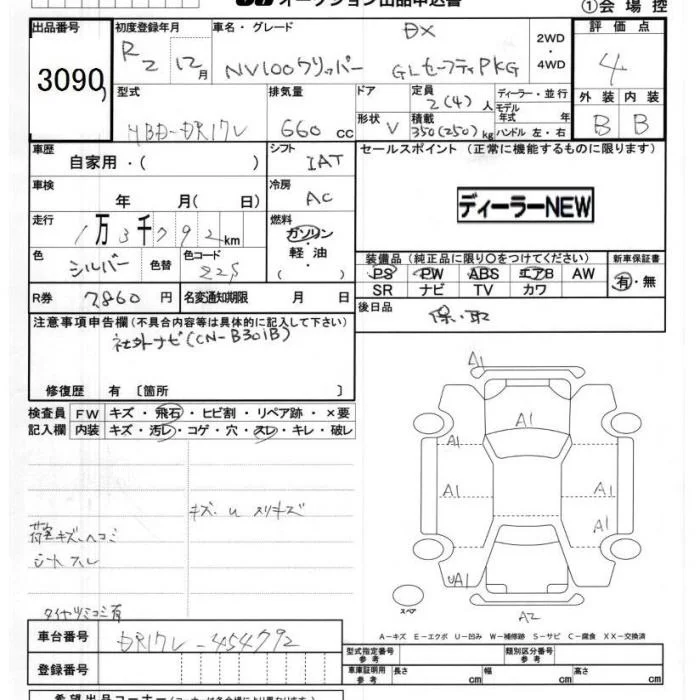 オークション出品申込書
①会場控
出品番号 初度登録年月 車名・グレード 評価点
3090
R2 12月 NV100クリッパー DX GLセーフティPKG 2WD・4WD 4
型式 排気量 ドア 定員 2(4)人 ディーラー・並行 外装 内装
HBD-DR17V 660cc 形状 V 積載 350(250)kg モデル年式 年 ハンドル 左・右 B B
車歴 自家用・( ) シフト IAT セールスポイント (正常に機能するものに限ります)
車検 年 月( 日) 冷房 AC ディーラーNEW
走行 1万3千792km 燃料 ガソリン・軽油・( )
色 シルバー 色替 色コード Z2S
装備品 (純正品に限り○をつけてください) 新車保証書
PS PW ABS エアB AW 有・無
SR ナビ TV カワ
R券 7860円 名変通知期限 月 日
後日品 保・取
注意事項申告欄 (不具合内容等は具体的に記入して下さい)
社外ナビ(CN-B301B)
修復歴 有 〔箇所 〕
検査員 FW キズ・飛石・ヒビ割・リペア跡・×要
記入欄 内装 キズ・汚レ・コゲ・穴・スレ・キレ・破レ
A1
A1
A1 A1
A1 A1
A1
UA1
スペア
A2
キズ・U スリキズ
荷室キズ・ヘコミ
シートスレ
タイヤツミコミ有
A-キズ E-エクボ U-凹み W-補修跡 S-サビ C-腐食 XX-交換済
車台番号 DR17V-454792
登録番号
型式指定番号 参考 類別区分番号 参考
車庫証明用 参考 長さ cm 幅 cm 高さ cm
希望出品コーナー